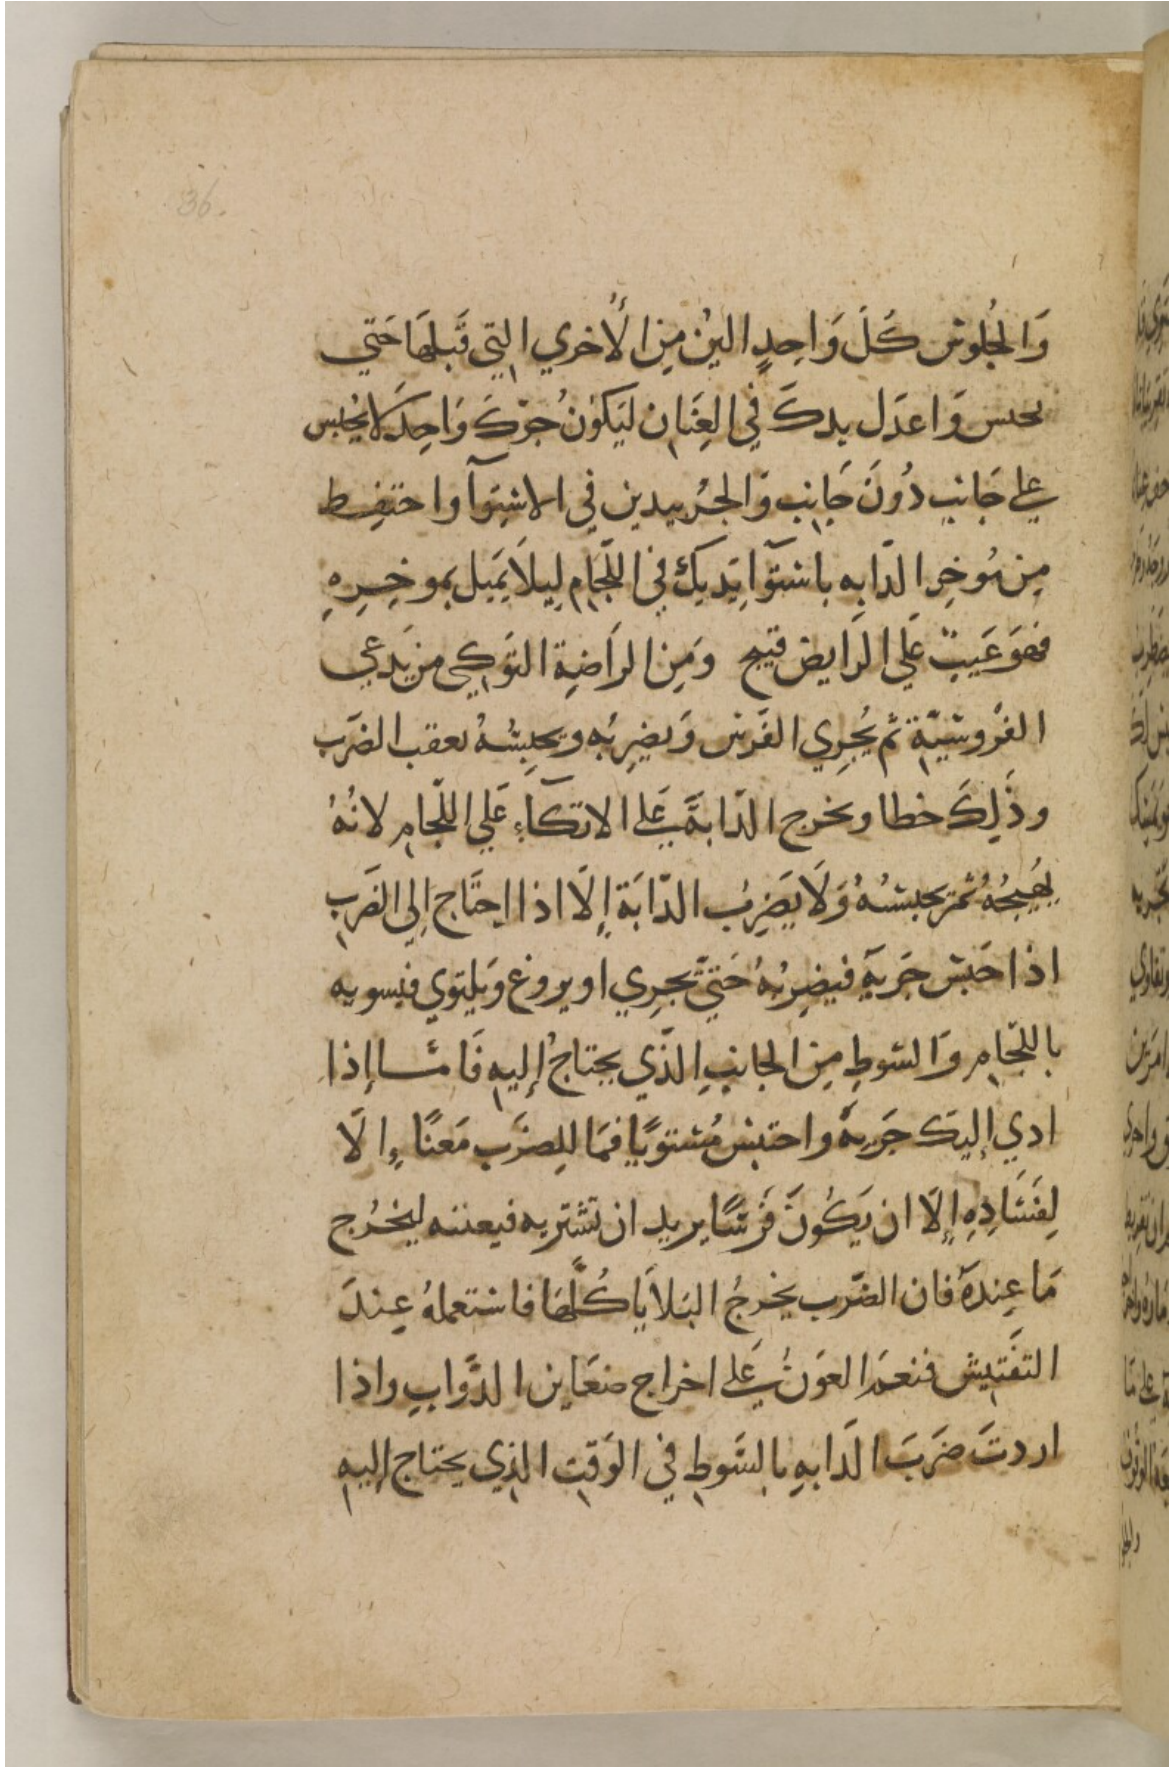 36.
وَالجُلوس كَلّ وَاحِدٍ اليْن مِن الأُخري التِي قَبلهَا حَتي
يحبس وَاعدَل يدكَ في العِنَان ليَكوُن جرّكَ وَاحِدَ لا يحبس
علي جَانِبٍ دُونَ جَانِب وَالجرّ بيدين في الاستِوآ واحتفِظ
مِن مُوخِر الدّابه باستوآ يَديكَ في اللّجَام لِيلاَ يَميل بموخِرِهِ
فهوَ عَيبٌ عَلي الرَايض قبيح وَمِن الرَاضِة النَوكي من يَدعي
الفرُوسيَّة ثم يُجرِي الفَرس وَيضرِبُه ويحبِسُهُ بعقب الضَرب
وذَلِكَ خطا ويخرج الدّابةَ عَلي الاتكآءِ عَلي اللّجام لانُهُ
يُهَيجُهُ ثم يحبسُهُ وَلَا يَضرِبُ الدّابَة إلّا اذا احتَاج إلي الضَربِ
اذا حَبَس جَريَهِ فيضرِبُهُ حَتيَّ يجرِي او يروغ وَيلتوي فيسويه
باللّجام وَالسَوطِ مِن الجانبِ الذّي يحتَاجُ إليهِ فَامّا إذا
ادي إليكَ جَريهُ واحتبس مُستويًا فمَا لِلِضرَب مَعنًا إلّا
لِفَسَادِهِ إلّا ان يَكُونَّ فَرسًا يريد ان تشتريه فيعننه ليخرُج
مَا عِندَهُ فان الضَرب يخرجُ البَلاَيَا كُلّهَا فاستعملهُ عِندَ
التفَتيش فنعمَ العَونُ عَلي اخراج مَعَاين الدَّوابِ واذا
اردتَ ضَربَ الدّابهِ بالسَوطِ في الوَقت الذِي يحتاج إليهِ